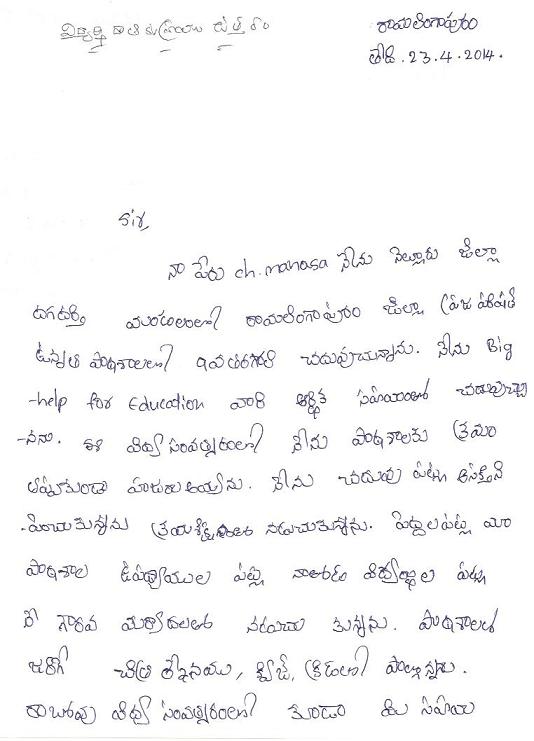 విద్యార్థి రాతి కుశలయు పత్రం
రామలింగాపురం
తేది. 23.4.2014.
Sir,
నా పేరు ch. manasa నేను నెల్లూరు జిల్లా
దగదర్తి మండలంలో రామలింగాపురం జిల్లా ప్రజా పరిషత్
ఉన్నత పాఠశాలలో 10వ తరగతి చదువుచున్నాను. నేను Big
-help for Education వారి ఆర్థిక సహాయంతో చదువుచున్నా
-నను. ఈ విద్యా సంవత్సరంలో నేను పాఠశాలకు క్రమం
తప్పకుండా హాజరు అయ్యాను. నేను చదువు పట్ల ఆసక్తిని
పెంచుకున్నాను క్రమశిక్షణతో నడుచుకున్నాను. పెద్దల పట్ల మా
పాఠశాల ఉపాధ్యాయుల పట్ల నాతోటి విద్యార్థుల పట్ల
గౌరవ మర్యాదలతో నడుచు కున్నాను. పాఠశాలలో
జరిగే చిత్ర లేఖనము, క్విజ్, క్రీడలలో పాల్గొన్నాను.
రాబోవు విద్యా సంవత్సరంలో కూడా మీ సహాయ